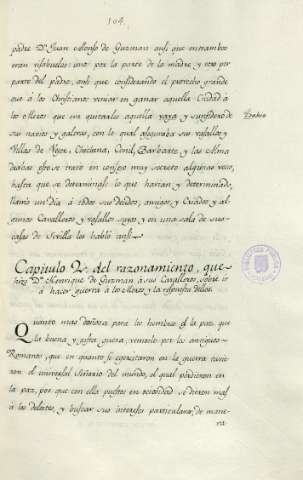 104.
padre Dn. Juan Alonso de Guzman, asi, que entrambos
eran visabuelos: uno por la parte de la madre, y otro por
parte del padre, asi, que considerando el provecho grande
que à los Christianos venia en ganar aquella Ciudad à
los Moros que en quitarles aquella y
sus navios y galeras, con lo qual aseguraba sus vasallos, y
Villas de Vejer, Chiclana, Conil, Barbate, y las
desbas trato en consejo muy secreto algunas veces,
hasta que se determinase lo que harian y determinado,
llamò un dia à todos sus deudos, amigos, y Criados, y al-
gunos Cavalleros, y vasallos suyos, y en una sala de sus
casas de Sevilla les hablò asi.
Capitulo 2o. del razonamiento, que
hizo Dn. Henrique de Guzman à sus Cavalleros, sobre ir
à hacer guerra à los Moros, y la respuesta dellos.
Quanto mas dañosa para los hombres el la paz que
la buena y justa guerra, vemoslo por los antiguos
Romanos, que en quanto se egercitaron en la guerra tuvie-
ron el universal Señorio del mundo, el qual perdieron en
la paz, por que con ella puestos en ociosidad se dieron mas
à los deleites, y buscar sus intereses particulares, de mane-
ra